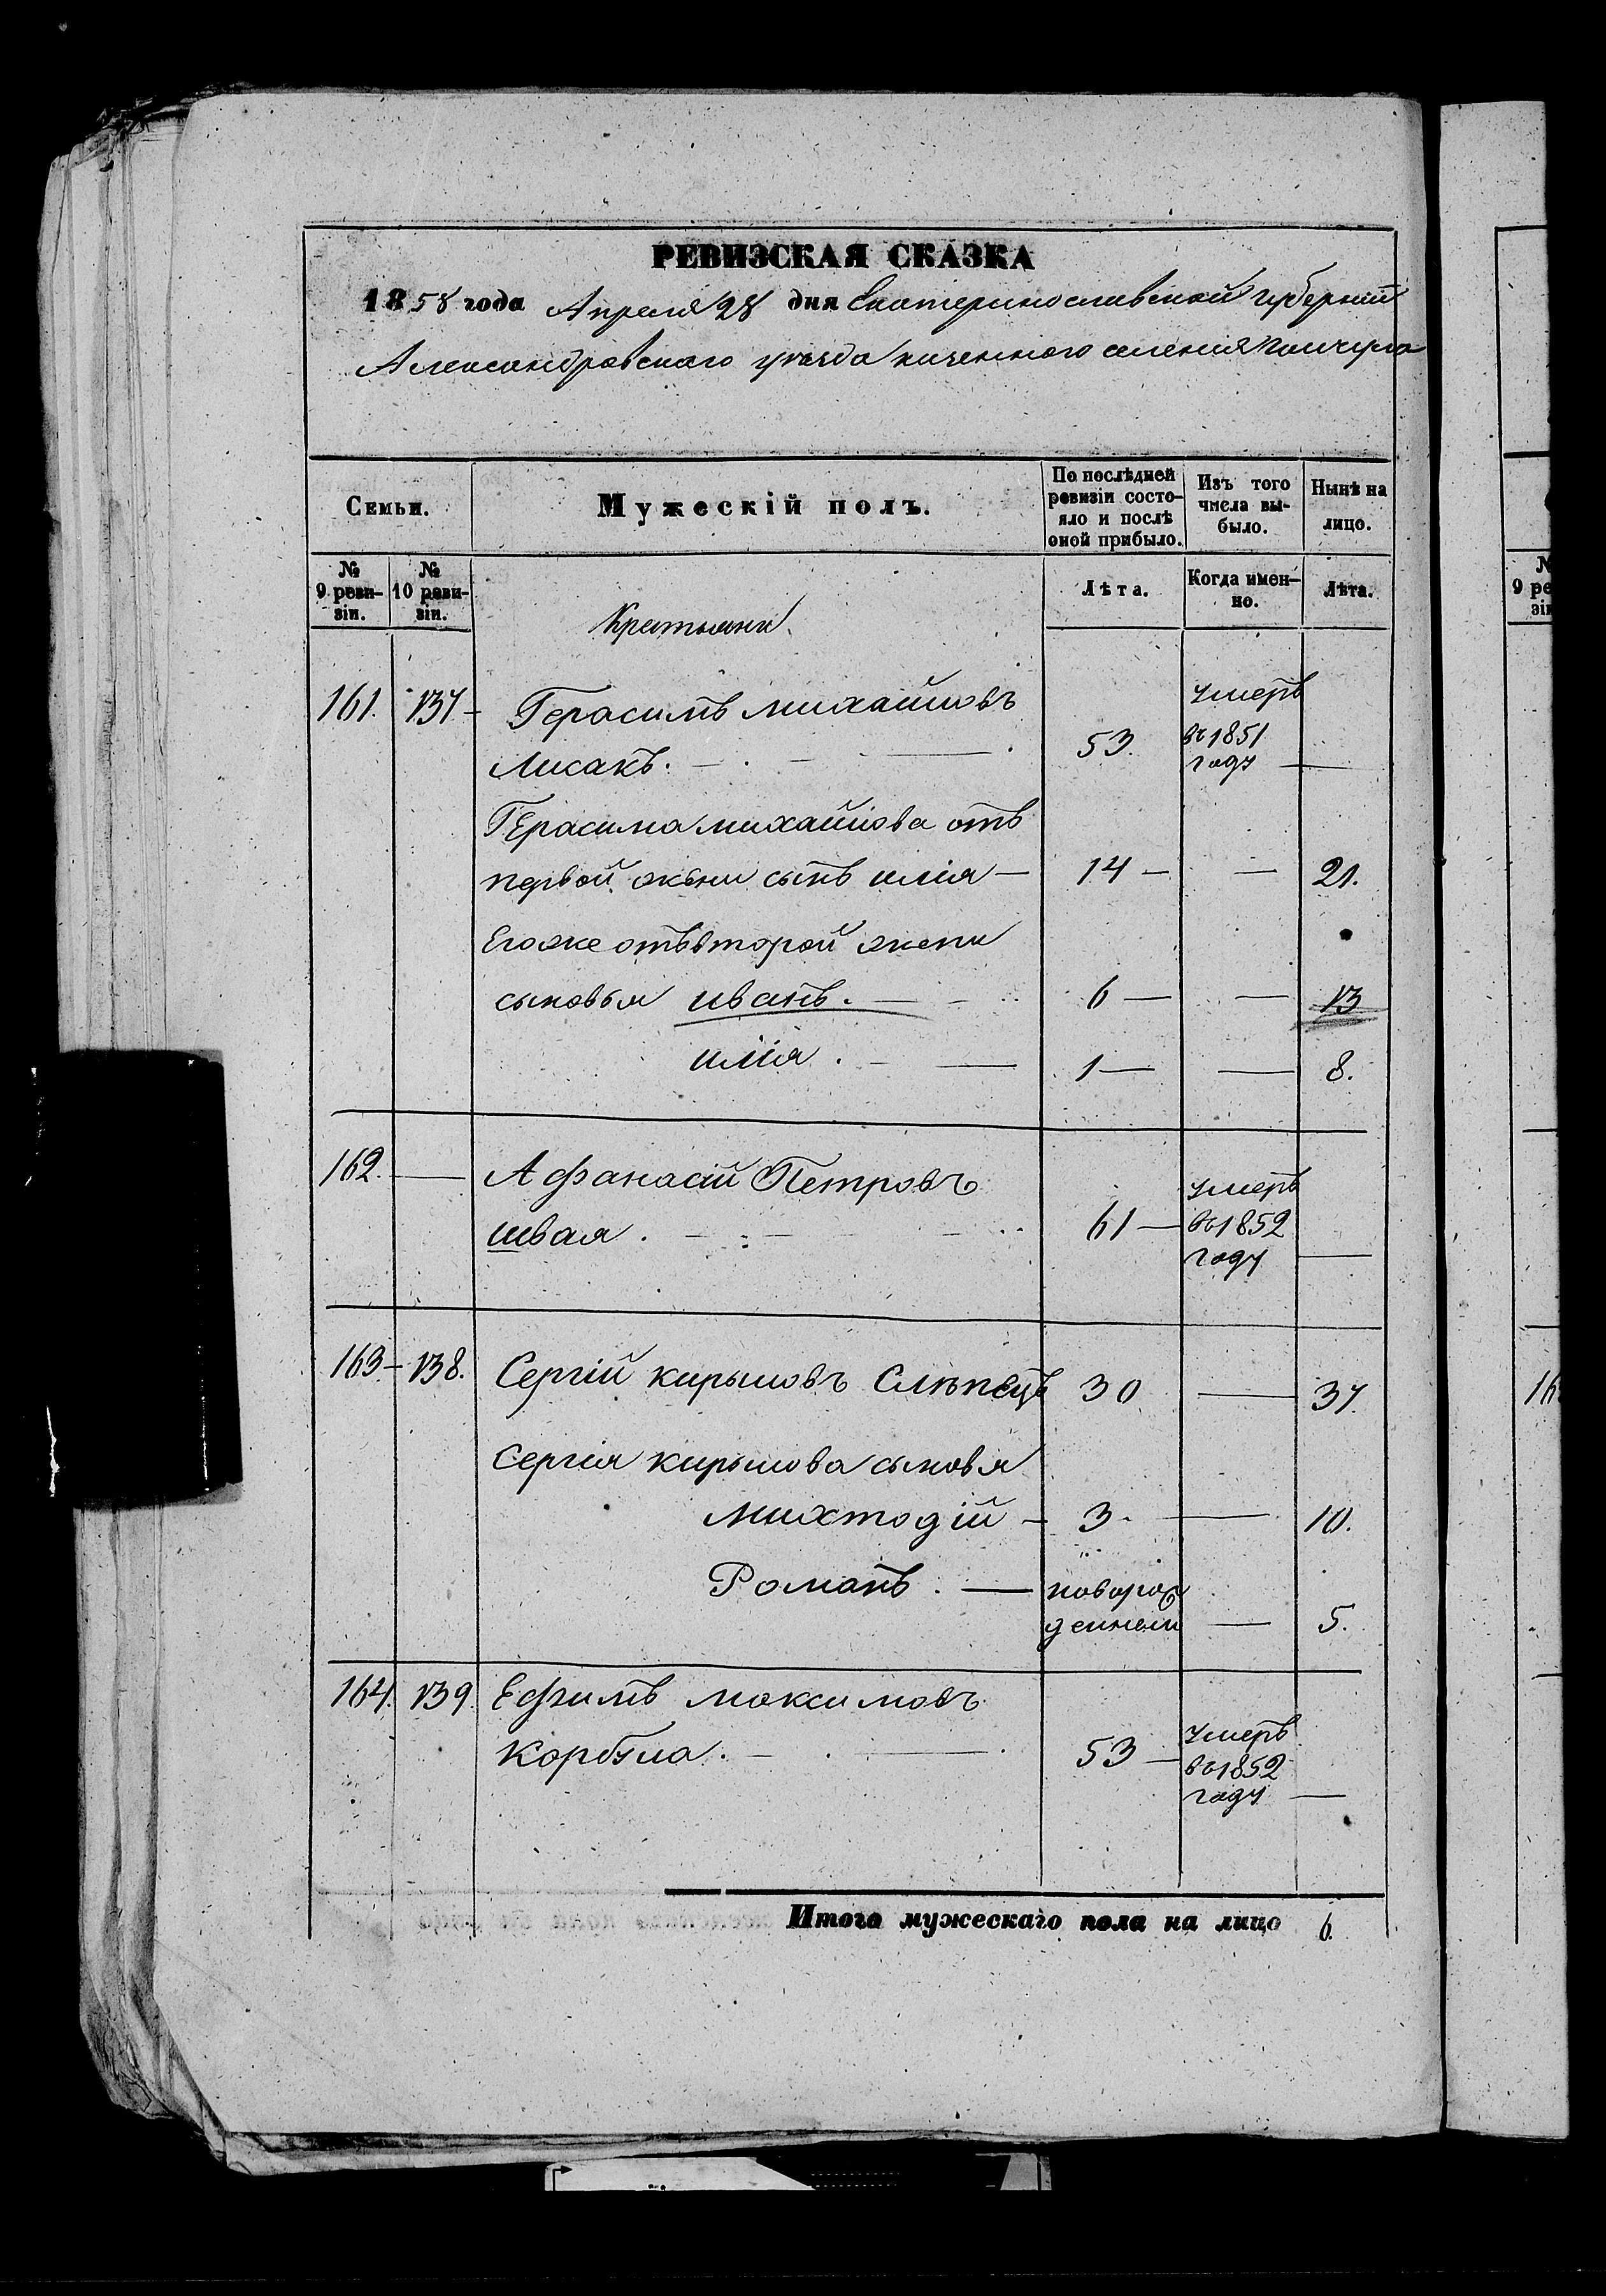 РЕВИЗСКАЯ СКАЗКА
1858 года Апреля 28 дня Екатеринославской губерніи
Александровского уѣзда казенного селенія Гайчула
Семьи.
Мужескій полъ.
По послѣдней ревизіи состо-
яло и послѣ
оной прибыло.
Изъ того
числа вы-
было.
Нынѣ на
лицо.
№
9 реви-
зіи.
№
10 реви-
зіи.
Лѣта.
Когда имен-
но.
Лѣта.
Крестьяне
161. 137 - Герасимъ михайловъ
Лисакъ. 53. умеръ
въ 1851
году —
Герасима михайлова отъ
первой жены сынъ илія — 14 — — 21.
Его же отъ второй жены
сыновья иванъ. — 6 — — 13
илія. — 1 — — 8.
162. — Афанасій Петровъ
швая. — 61 — умеръ
въ 1852
году —
163 - 138. Сергій кириловъ Слѣпецъ 30 — 37.
Сергія кирилова сыновья
михтодій — 3 - — 10.
Романъ. — новорож
денный — 5.
164. 139. Ефимъ максимовъ
корбула. — 53 — умеръ
въ 1852
году —
Итого мужескаго пола на лицо 6.
№
9 ре
зіи
16